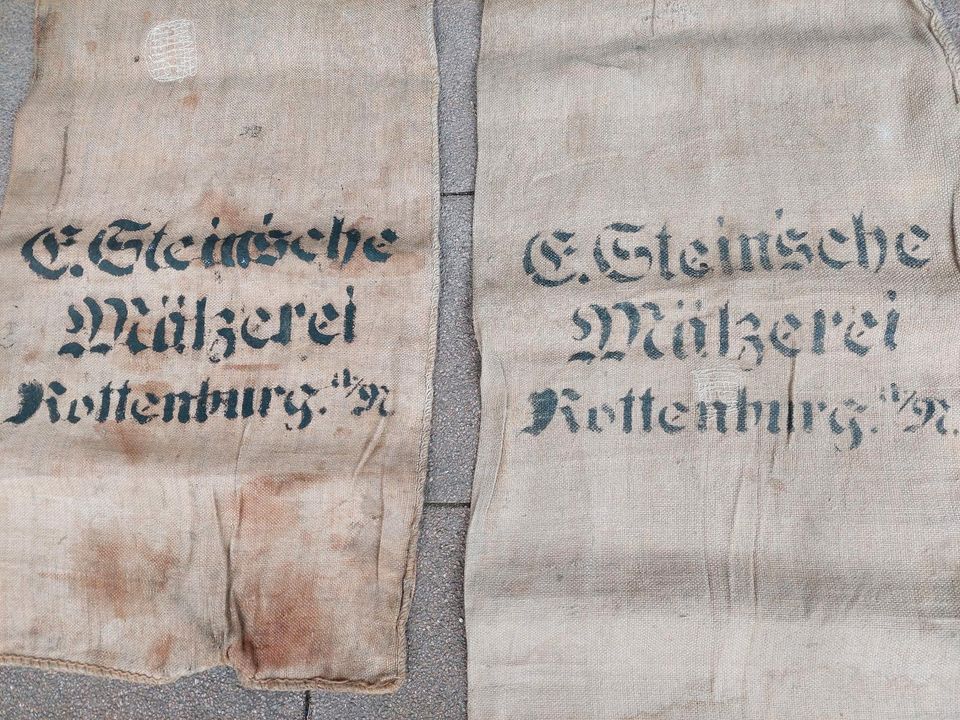 E. Stein'sche
Mälzerei
Rottenburg. a/N
E. Stein'sche
Mälzerei
Rottenburg. a/N.